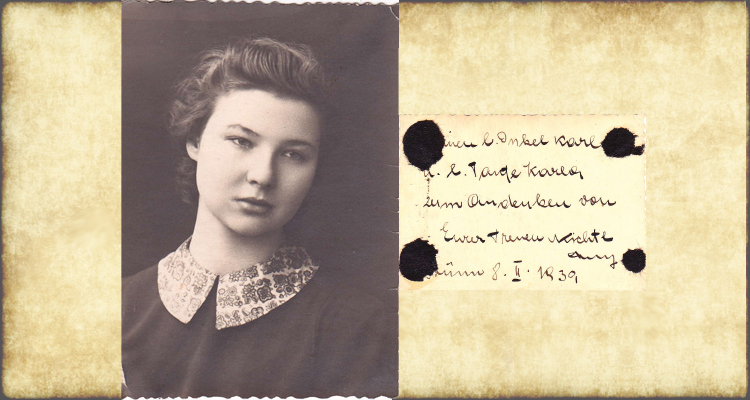 l. Onkel Karl
u. l. Tante Karla
zum Andenken von
Eurer treuen Nichte
Anny
8. II. 1939